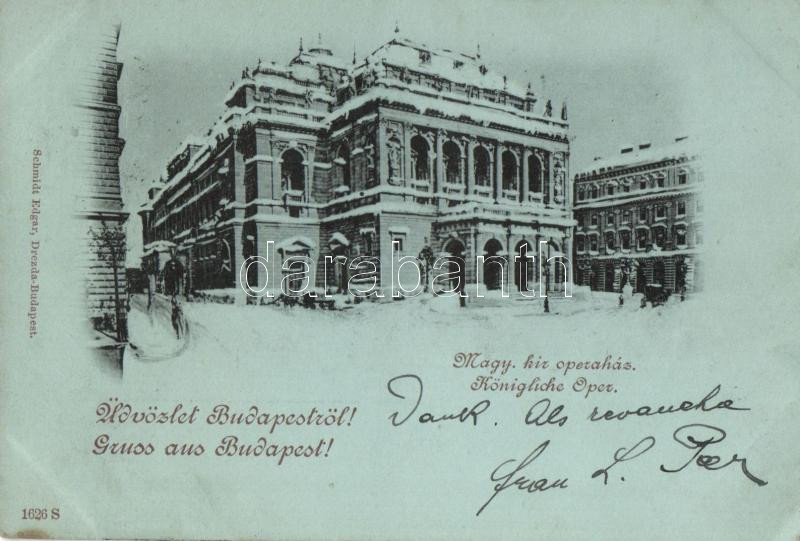 Schmidt Edgar, Drezda-Budapest.
darabanth
Magy. kir operaház.
Königliche Oper.
Üdvözlet Budapestról!
Gruss aus Budapest!
Dank. Als revanche
frau L. Poor
1626 S